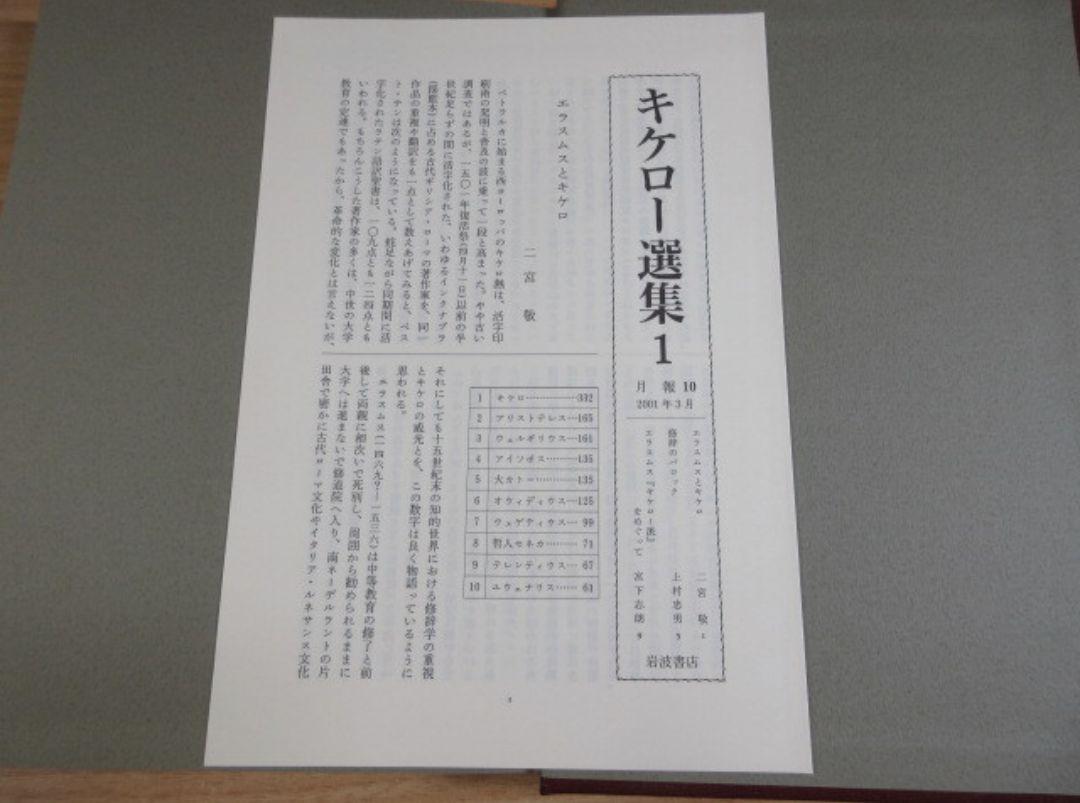 キケロー選集 1
月報 10
2001年3月
エラスムスとキケロ 二宮 敬 1
修辞のバロック 上村忠男 5
エラスムス『キケロー派』
をめぐって 宮下志朗 9
岩波書店
エラスムスとキケロ
二宮 敬
ペトラルカに始まる西ヨーロッパのキケロ熱は、活字印
刷術の発明と普及の波に乗って一段と高まった。やや古い
調査ではあるが、一五〇一年復活祭(四月十一日)以前の半
世紀足らずの間に活字化された、いわゆるインクナブラ
(揺籃本)に占める古代ギリシア・ローマの著作家を、同一
作品の重複や翻訳をも一点として数えあげてみると、ベス
ト・テンは次のようになっている。蛇足ながら同期間に活
字化されたラテン語訳聖書は、一〇九点とも一二四点とも
いわれる。もちろんこうした著作家の多くは、中世の大学
教育の定連でもあったから、革命的な変化とは言えないが、
1 キケロ…………332
2 アリストテレス…165
3 ウェルギリウス…161
4 アイソポス………135
5 大カトー…………135
6 オウィディウス…125
7 ウェゲティウス… 99
8 哲人セネカ……… 71
9 テレンティウス… 67
10 ユウェナリス…… 61
それにしても十五世紀末の知的世界における修辞学の重視
とキケロの威光とを、この数字は良く物語っているように
思われる。
エラスムス(一四六九?―一五三六)は中等教育の修了と前
後して両親に相次いで死別し、周囲から勧められるままに
大学へは進まないで修道院へ入り、南ネーデルラントの片
田舎で密かに古代ローマ文化やイタリア・ルネサンス文化